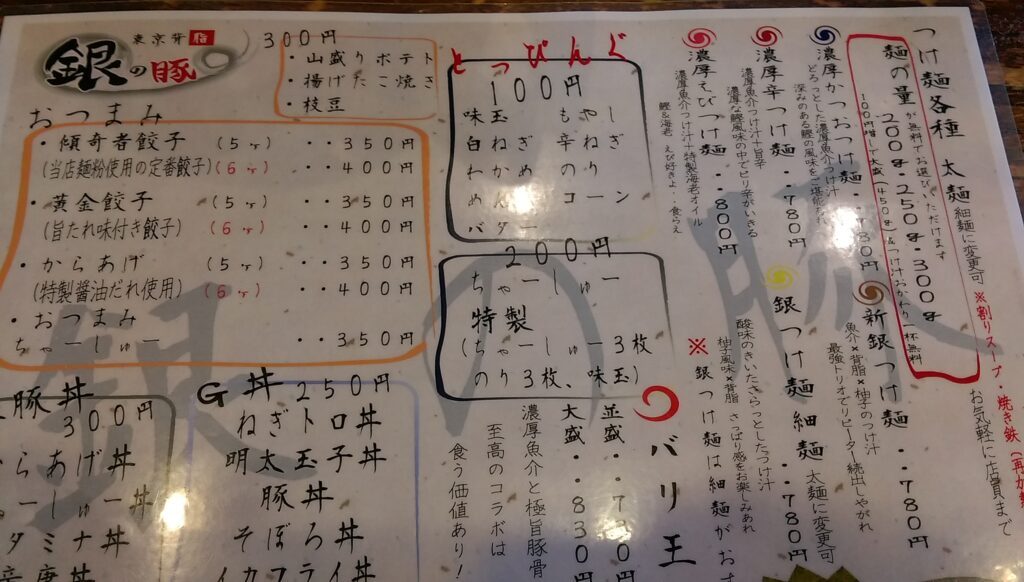 東京背店
銀の豚
300円
・山盛りポテト
・揚げたこ焼き
・枝豆
おつまみ
・傾奇者餃子 (5ヶ) ・・350円
(当店麺粉使用の定番餃子)(6ヶ) ・・400円
・黄金餃子 (5ヶ) ・・350円
(旨たれ味付き餃子) (6ヶ) ・・400円
・からあげ (5ヶ) ・・350円
(特製醤油だれ使用) (6ヶ) ・・400円
・おつまみ
ちゃーしゅー ・・350円
とっぴんぐ
100円
味玉 もやし
白ねぎ 辛ねぎ
わかめ のり
めんま コーン
バター
200円
ちゃーしゅー
特製
(ちゃーしゅー3枚
のり3枚、味玉)
つけ麺各種 太麺 細麺に変更可
※割りスープ・焼き鉄
お気軽に店員まで
麺の量が無料でお選びいただけます
200g・250g・300g
100円増しで大盛
濃厚かつおつけ麺・730円
どろっとした濃厚魚介つけ汁
深みのある鰹の風味をご堪能
濃厚辛つけ麺・・780円
濃厚魚介つけ汁＋旨辛
濃厚な鰹風味の中でピリ辛がいきる
濃厚えびつけ麺・・800円
濃厚魚介つけ汁＋特製海老オイル
鰹＆海老 えび好きよ・食らえ
新銀つけ麺・・780円
魚介×背脂×柚子のつけ汁
最強トリオでリピーター続出しやがれ
銀つけ麺 細麺・・780円
太麺に変更可
酸味のきいたさらっとしたつけ汁
柚子風味×背脂 さっぱり感をお楽しみあれ
※銀つけ麺は細麺がお
バリ王
並盛・・730円
大盛・・830円
濃厚魚介と極旨豚骨
至高のコラボは
食う価値あり!
豚丼
300円
らあげ丼
ーしゅー丼
タミナ丼
G丼 250円
ねぎトロ丼
明太玉子丼
豚丼
そぼろ丼
イカフライ丼
銀の豚